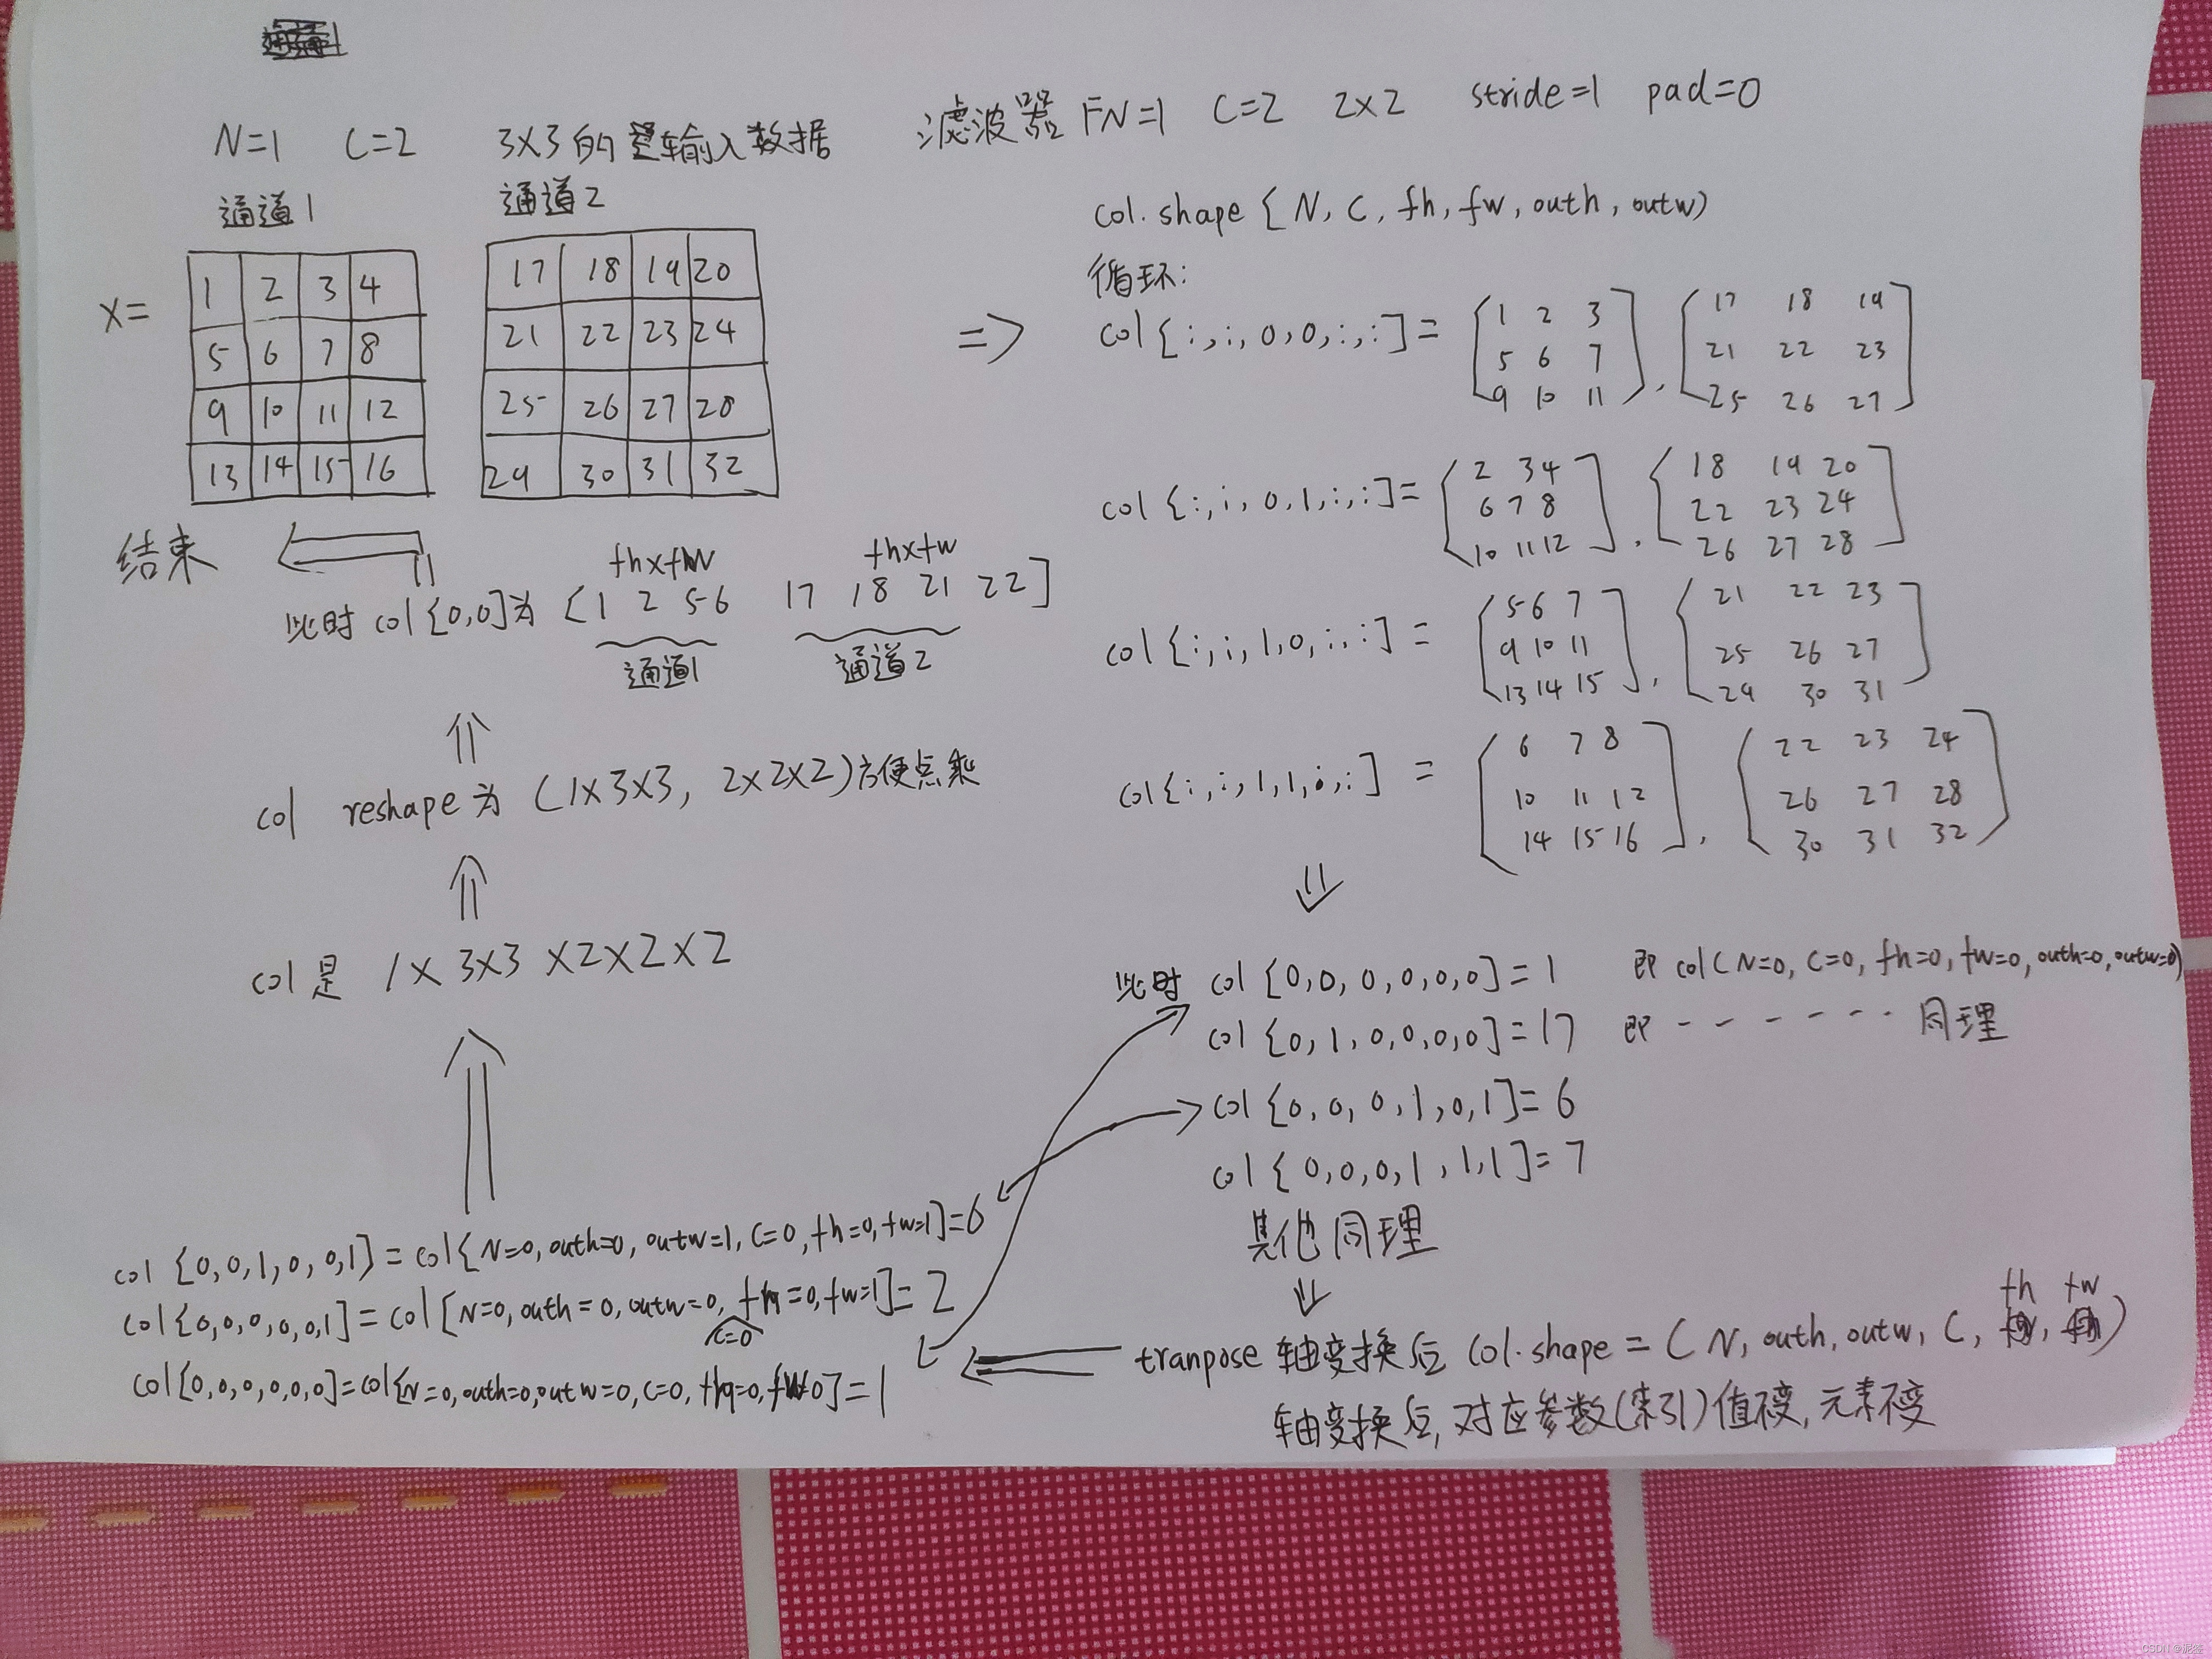 N=1 C=2 3X3的输入数据 滤波器 FN=1 C=2 2X2 stride=1 pad=0
通道1 通道2
X=
1 2 3 4
5 6 7 8
9 10 11 12
13 14 15 16
17 18 19 20
21 22 23 24
25 26 27 28
29 30 31 32
=>
col.shape [N, C, fh, fw, outh, outw)
循环:
col[:,:,0,0,:,:]=
1 2 3
5 6 7
9 10 11
,
17 18 19
21 22 23
25 26 27
col[:,:,0,1,:,:]=
2 3 4
6 7 8
10 11 12
,
18 19 20
22 23 24
26 27 28
col[:,:,1,0,:,:]=
5 6 7
9 10 11
13 14 15
,
21 22 23
25 26 27
29 30 31
col[:,:,1,1,:,:]=
6 7 8
10 11 12
14 15 16
,
22 23 24
26 27 28
30 31 32
此时 col[0,0,0,0,0,0]=1 即 col(N=0, C=0, fh=0, fw=0, outh=0, outw=0)
col[0,1,0,0,0,0]=17 即 - - - - - - - 同理
col[0,0,0,1,0,1]=6
col[0,0,0,1,1,1]=7
其他同理
fh fw
tranpose 轴变换后 col.shape = (N, outh, outw, C, , )
轴变换后,对应参数(索引)值不变,元素不变
col[0,0,1,0,0,1]=col[N=0,outh=0,outw=1,C=0,fh=0,fw=1]=6
col[0,0,0,0,0,1]=col[N=0,outh=0,outw=0,fh=0,fw=1]=2
C=0
col[0,0,0,0,0,0]=col[N=0,outh=0,outw=0,C=0,fh=0,fw=0]=1
col是 1X3X3X2X2X2
col reshape为 (1X3X3, 2X2X2)方便点乘
fhxfw fhxfw
此时 col[0,0]为 [1 2 5 6 17 18 21 22]
通道1 通道2
结束
CSDN @泥签